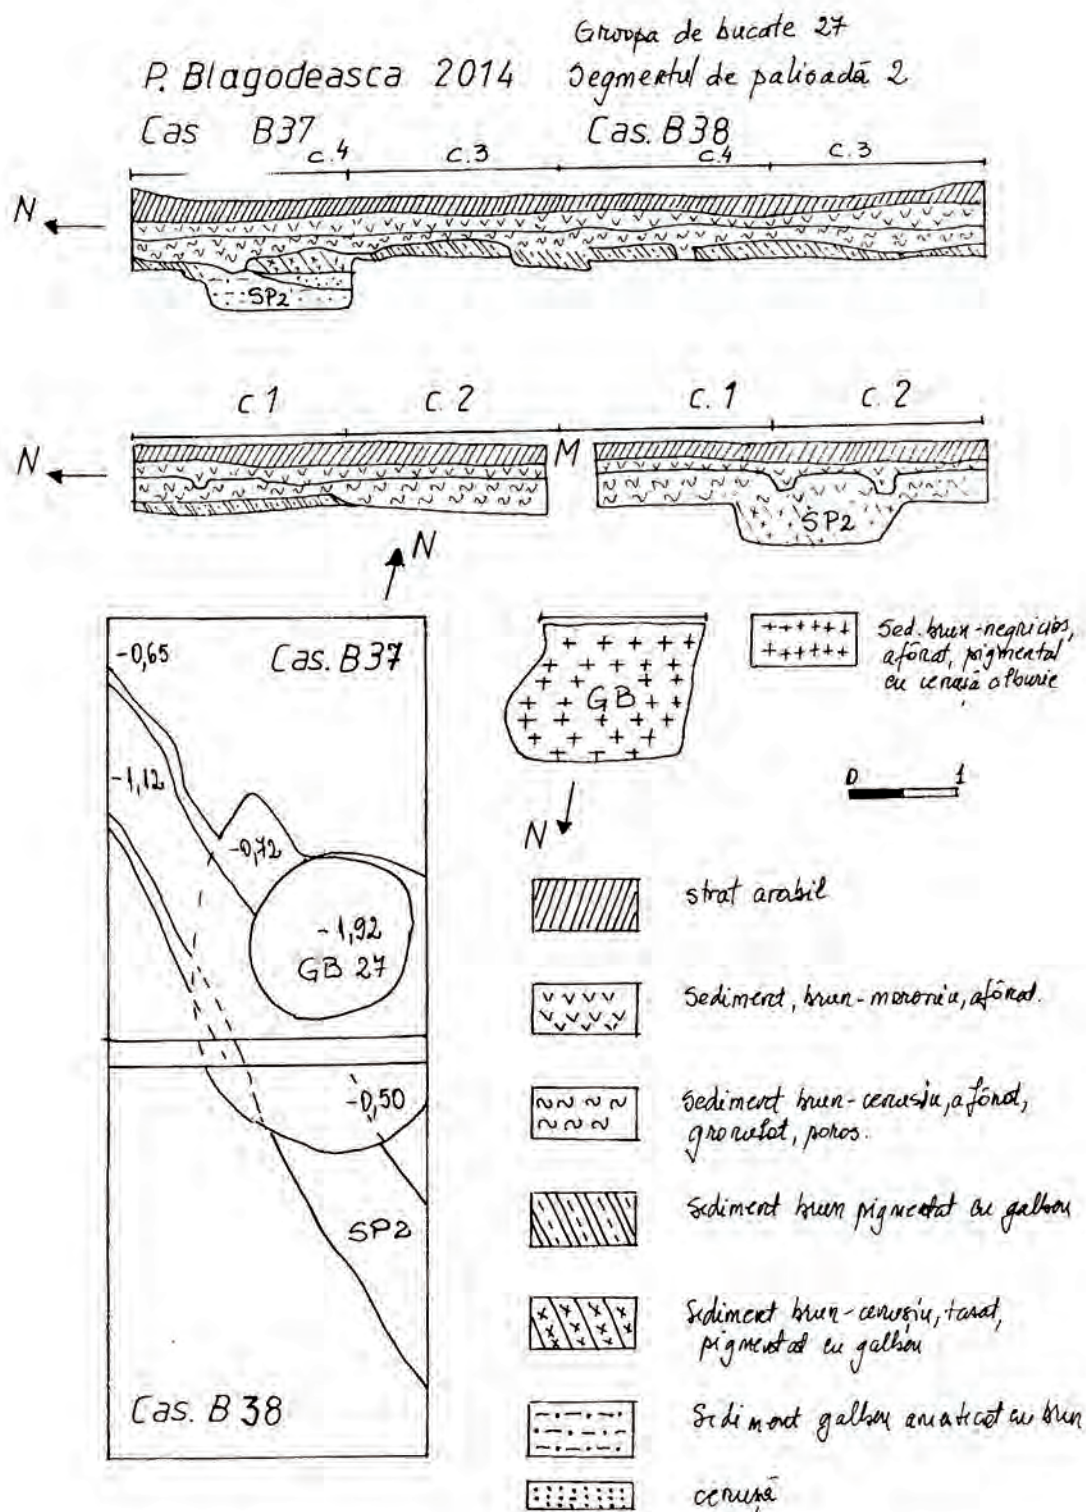 Groapa de bucate 27
P. Blagodeasca 2014 Segmentul de palisadă 2
Cas B37 Cas. B38
c.4 c.3 c.4 c.3
N
SP2
c.1 c.2 c.1 c.2
N M
SP2
N
-0,65 Cas. B37
-1,12
-0,72
-1,92
GB 27
-0,50
SP2
Cas. B38
GB
N
Sed. brun-negricios,
afânat, pigmentat
cu cenușă alburie
0 1
strat arabil
Sediment, brun-maroniu, afânat.
Sediment brun-cenușiu, afânat,
granulat, poros.
Sediment brun pigmentat cu galben
Sediment brun-cenușiu, tasat,
pigmentat cu galben
Sediment galben amestecat cu brun
cenușă